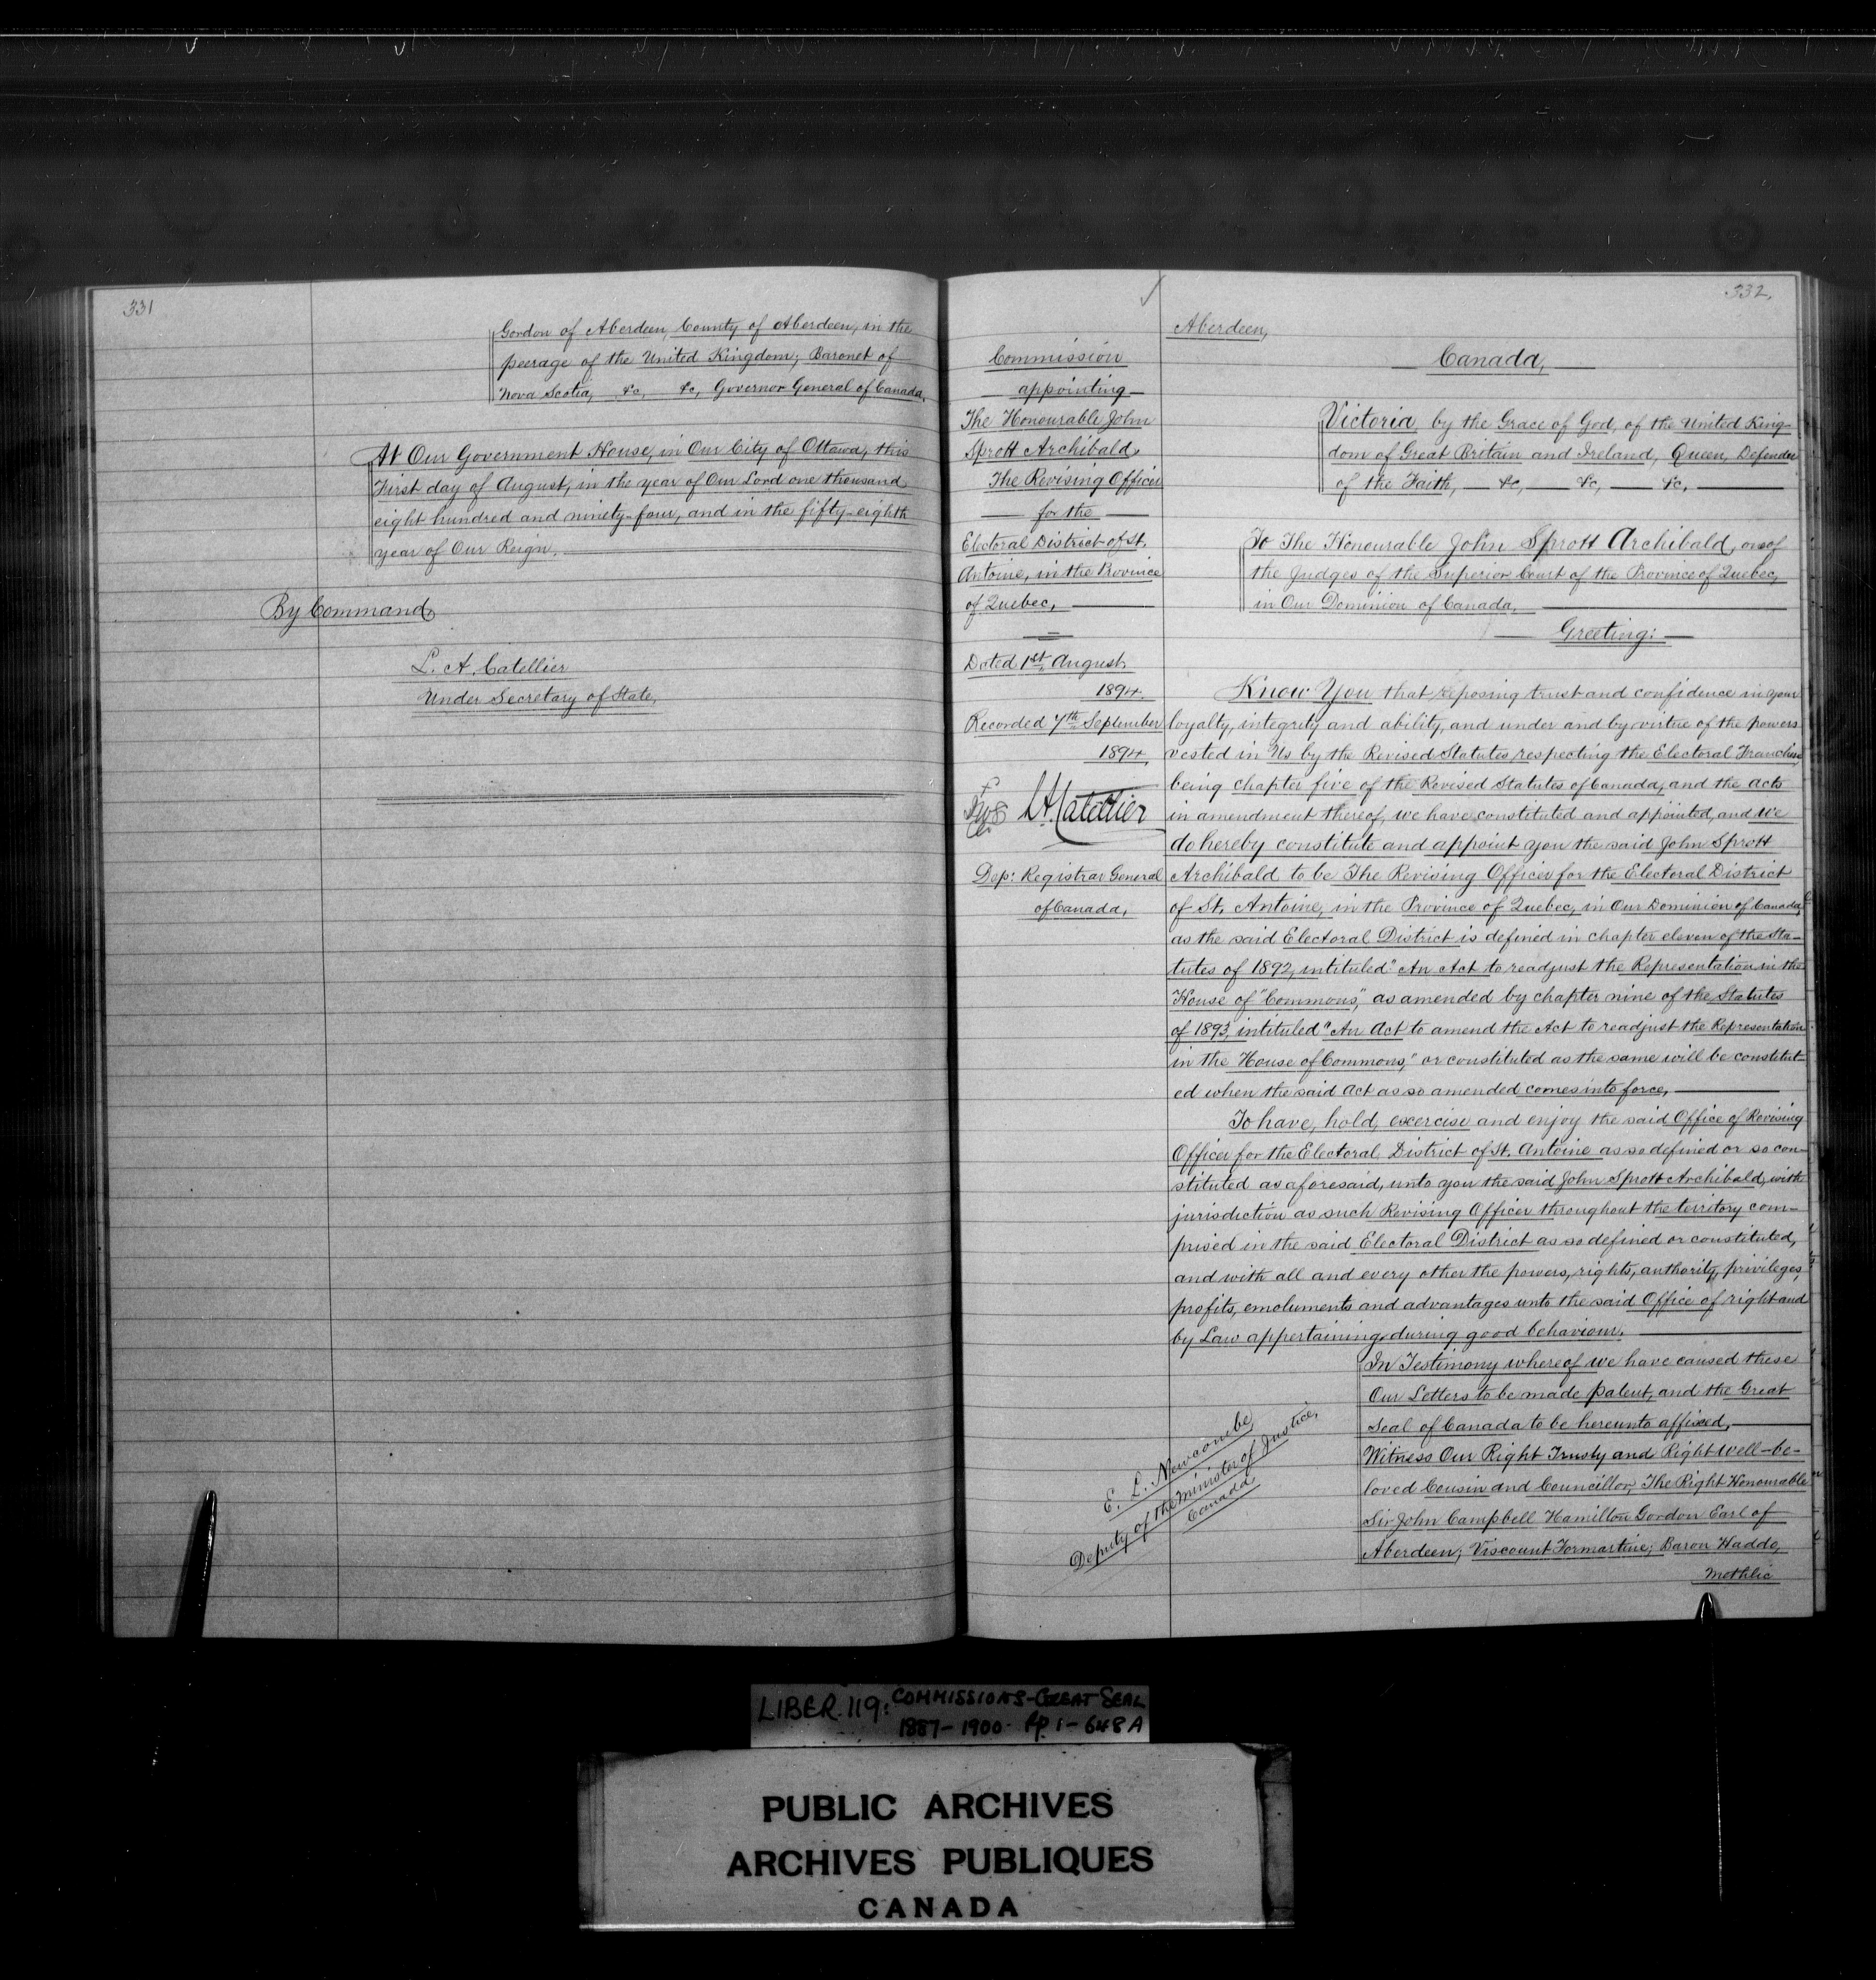 331
Gordon of Aberdeen, County of Aberdeen, in the
peerage of the United Kingdom; Baronet of
Nova Scotia, &c, &c, Governor General of Canada,
At Our Government House, in Our City of Ottawa, this
First day of August, in the year of Our Lord one thousand
eight hundred and ninety-four, and in the fifty-eighth
year of Our Reign.
By Command,
L. A. Catellier
Under Secretary of State,
332,
Aberdeen,
Commission
appointing
The Honourable John
Sprott Archibald,
The Revising Officer
for the
Electoral District of St.
Antoine, in the Province
of Quebec,
Dated 1st August,
1894.
Recorded 7th September
1894,
L.A. Catellier
Dep: Registrar General
of Canada,
Canada,
Victoria, by the Grace of God, of the United King-
dom of Great Britain and Ireland, Queen, Defender
of the Faith, &c, &c, &c,
To The Honourable John Sprott Archibald, one of
the Judges of the Superior Court of the Province of Quebec,
in Our Dominion of Canada,
Greeting:
Know You that reposing trust and confidence in your
loyalty, integrity and ability, and under and by virtue of the powers
vested in Us by the Revised Statutes respecting the Electoral Franchise,
being chapter five of the Revised Statutes of Canada, and the acts
in amendment thereof, we have constituted and appointed, and We
do hereby constitute and appoint you the said John Sprott
Archibald to be The Revising Officer for the Electoral District
of St. Antoine, in the Province of Quebec, in Our Dominion of Canada,
as the said Electoral District is defined in chapter eleven of the Sta-
tutes of 1892, intituled "An Act to readjust the Representation in the
House of "Commons," as amended by chapter nine of the Statutes
of 1893, intituled "An Act to amend the Act to readjust the Representation
in the House of Commons," or constituted as the same will be constitut-
ed when the said Act as so amended comes into force,
To have, hold, exercise and enjoy the said Office of Revising
Officer for the Electoral District of St. Antoine as so defined or so con-
stituted as aforesaid, unto you the said John Sprott Archibald, with
jurisdiction as such Revising Officer throughout the territory com-
prised in the said Electoral District as so defined or constituted,
and with all and every other the powers, rights, authority, privileges,
profits, emoluments and advantages unto the said Office of right and
by Law appertaining during good behaviour.
In Testimony whereof we have caused these
Our Letters to be made patent, and the Great
Seal of Canada to be hereunto affixed,
Witness Our Right Trusty and Right Well-be-
loved Cousin and Councillor, The Right Honourable
Sir John Campbell Hamilton Gordon Earl of
Aberdeen; Viscount Formartine; Baron Haddo,
Methlic
E. L. Newcombe
Deputy of the Minister of Justice,
Canada
LIBER.119: COMMISSIONS-GREAT SEAL
1887-1900- Pp. 1-648A
PUBLIC ARCHIVES
ARCHIVES PUBLIQUES
CANADA